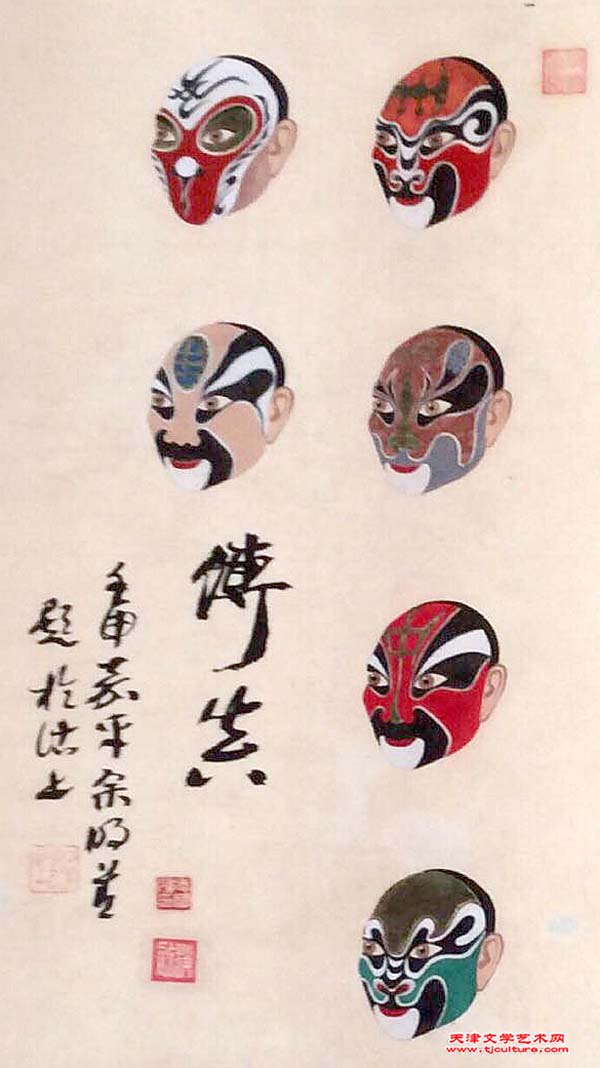 傳真
壬申嘉平余明善
題於沽上
天津文学艺术网
www.tjculture.com